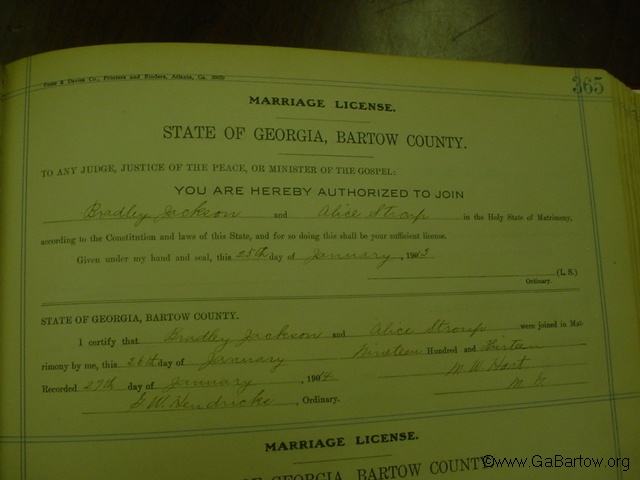 Foote & Davies Co., Printers and Binders, Atlanta, Ga.
365
MARRIAGE LICENSE.
STATE OF GEORGIA, BARTOW COUNTY.
TO ANY JUDGE, JUSTICE OF THE PEACE, OR MINISTER OF THE GOSPEL:
YOU ARE HEREBY AUTHORIZED TO JOIN
Bradley Jackson and Alice Stroup in the Holy State of Matrimony,
according to the Constitution and laws of this State, and for so doing this shall be your sufficient license.
Given under my hand and seal, this 25th day of January, 1903
(L. S.)
Ordinary.
STATE OF GEORGIA, BARTOW COUNTY.
I certify that Bradley Jackson and Alice Stroup were joined in Mat-
rimony by me, this 26th day of January Nineteen Hundred and Thirteen
Recorded 27th day of January, 1904 M. W. Hart
G. W. Hendricks, Ordinary. M. G.
MARRIAGE LICENSE.
OF GEORGIA, BARTOW COUNTY
©www.GaBartow.org